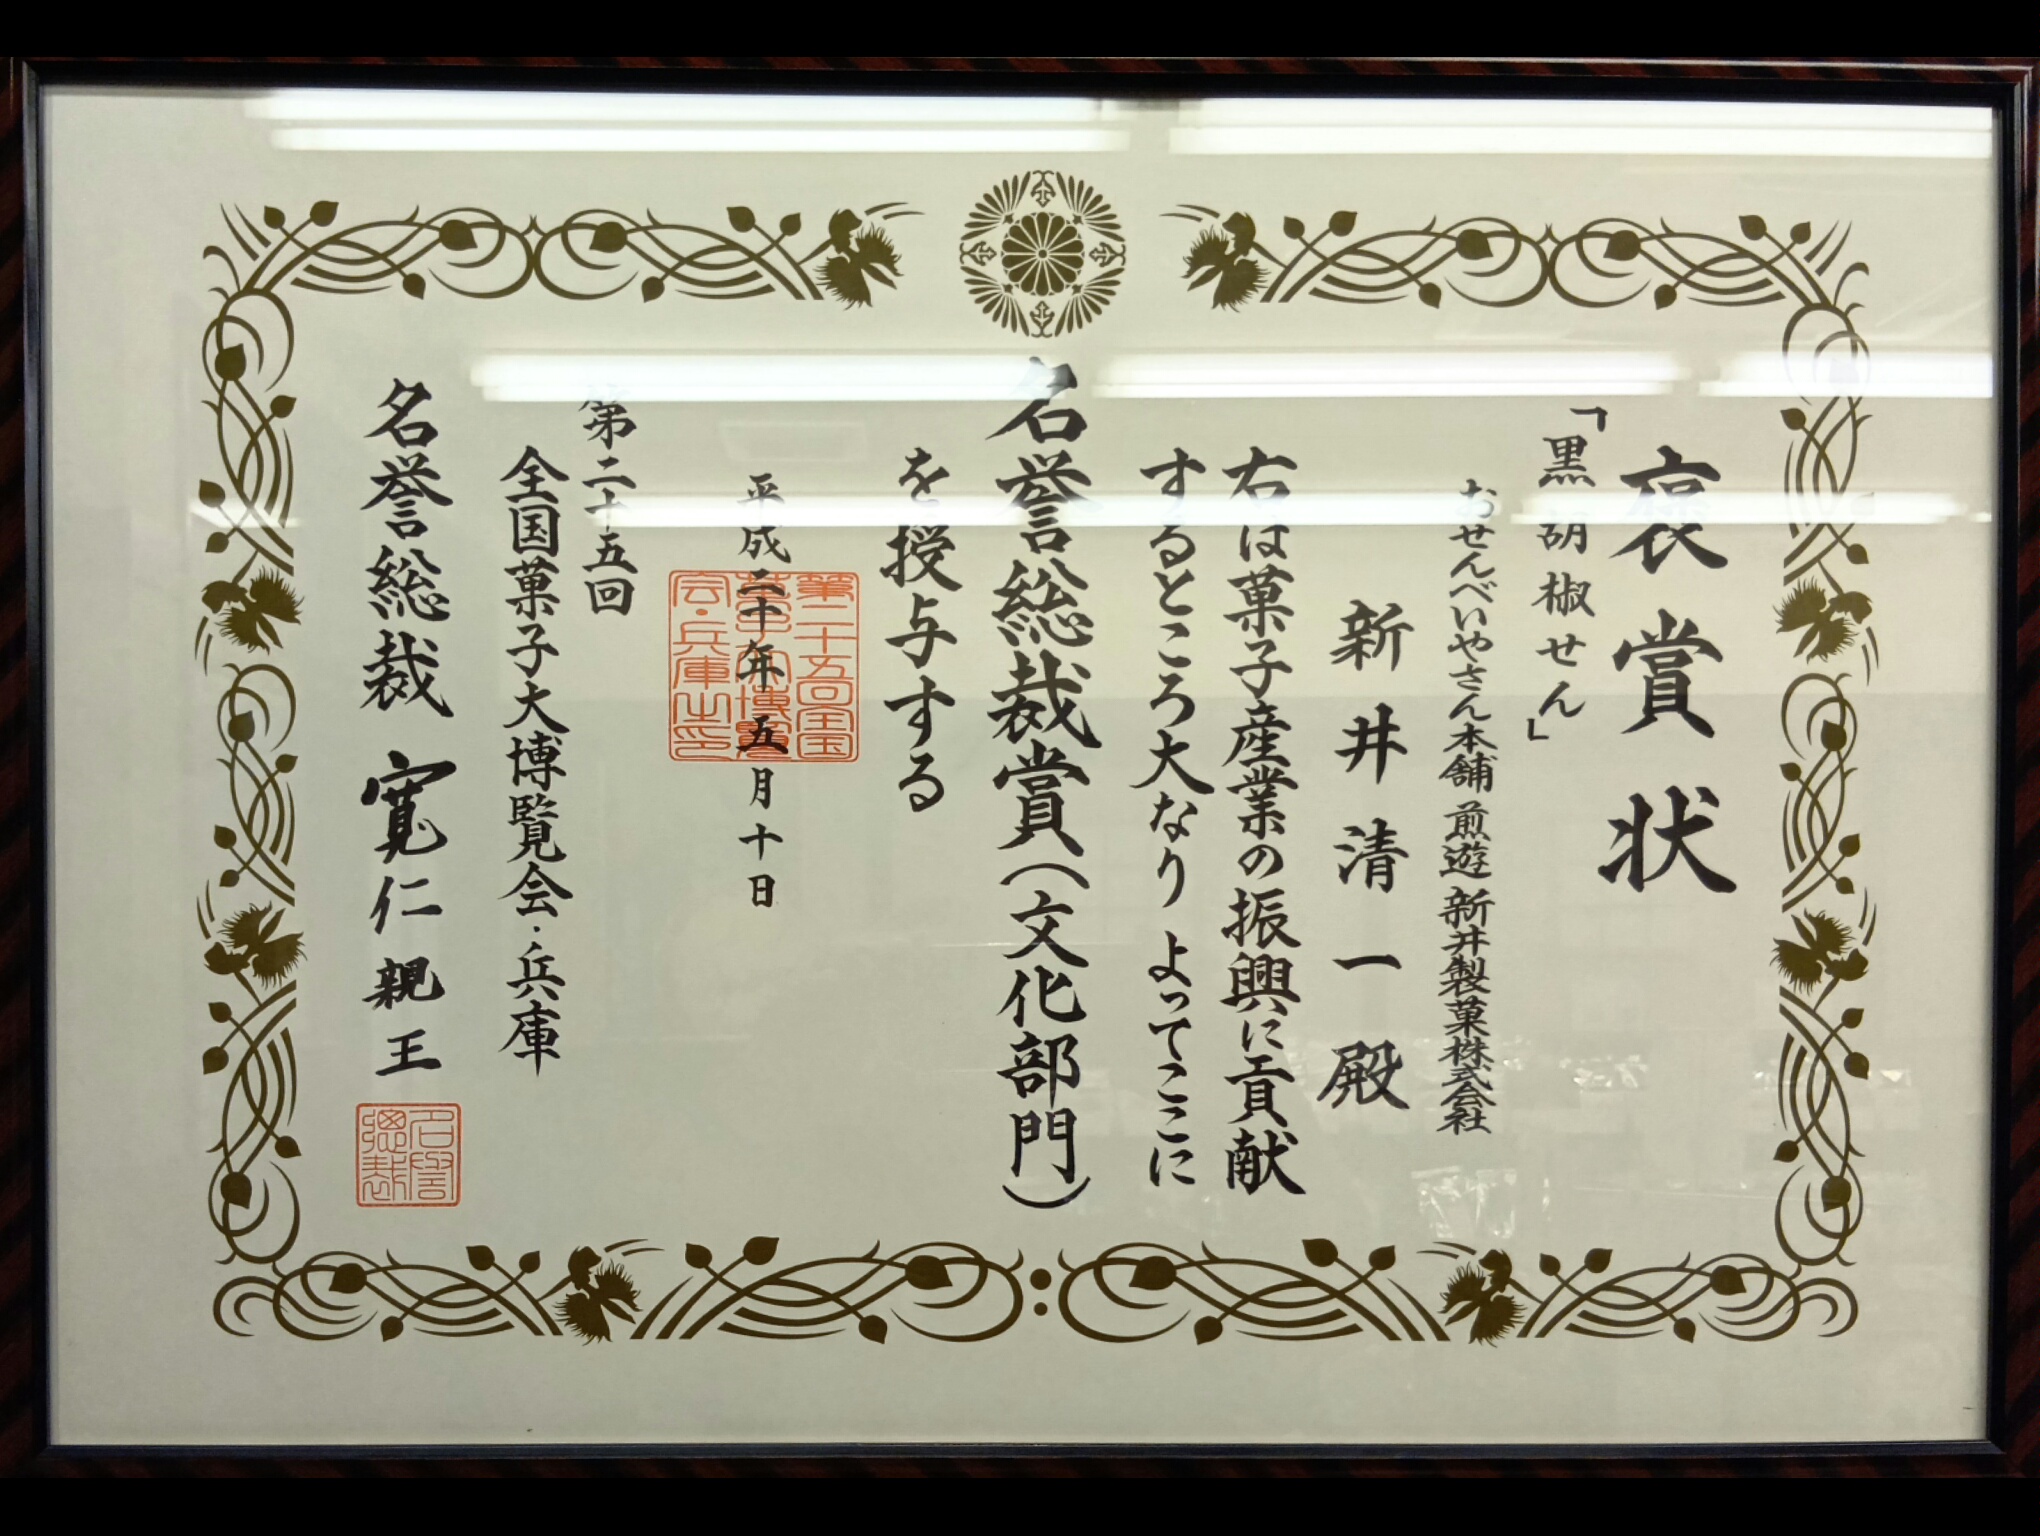 褒賞状
「黒胡椒せん」
おせんべいやさん本舗 煎遊 新井製菓株式会社
新井清一殿
右は菓子産業の振興に貢献
するところ大なり よってここに
名誉総裁賞（文化部門）
を授与する
平成二十年五月十日
第二十五回
全国菓子大博覧会・兵庫
名誉総裁 寛仁親王
第二十五回全国
菓子大博覧
会・兵庫之印
名誉
総裁